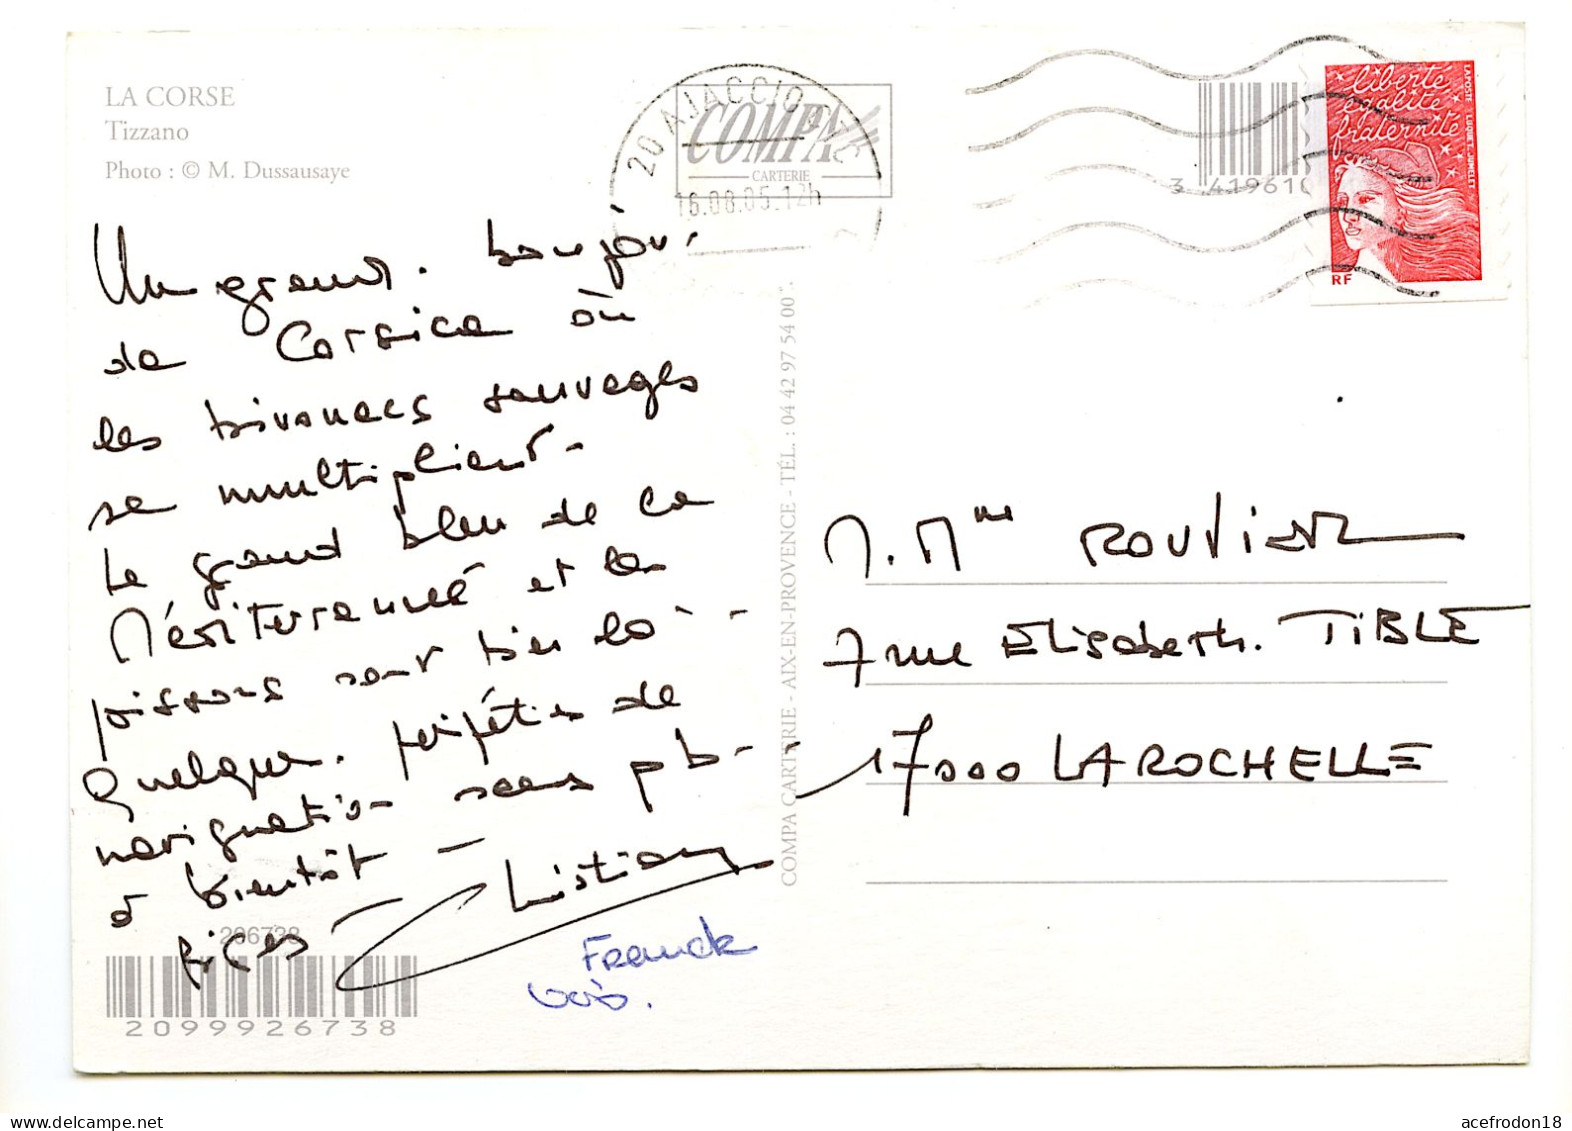 LA CORSE
Tizzano
Photo : © M. Dussausaye
20 AJACCIO
COMPA
CARTERIE
16.08.05.12h
3 419610
liberté
égalité
fraternité
LA POSTE
RF
Un grand. bonjour
de Corsica où
les bivouacs sauvages
se multiplient -
Le grand bleu de la
Méditerranée et les
poissons sont bien là - -
Quelque. péripéties de
navigation sans pb - -
à bientôt -
Bises - Christian
Franck
COMPA CARTERIE - AIX-EN-PROVENCE - TÉL. : 04 42 97 54 00
M. Mme ROUVIER
7 rue Elisabeth. TIBLE
17000 LA ROCHELLE
206738
2099926738
acefrodon18